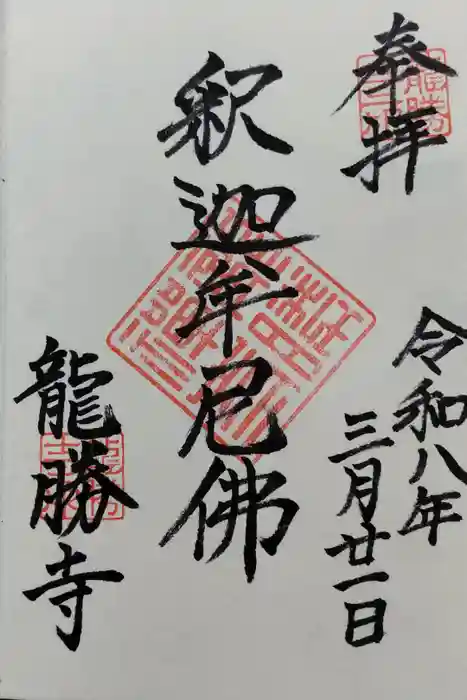 奉拝
令和八年
三月廿一日
釈迦牟尼佛
龍勝寺